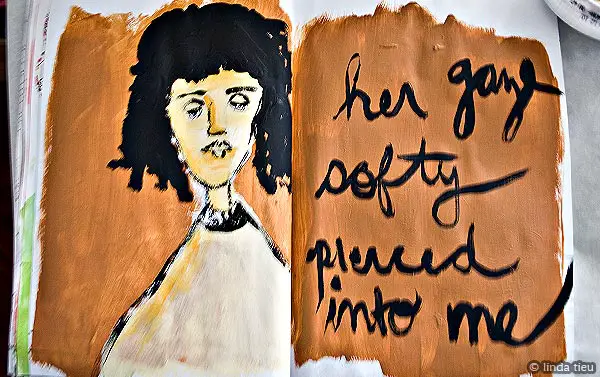 her gaze
softy
pierced
into me
© linda tieu